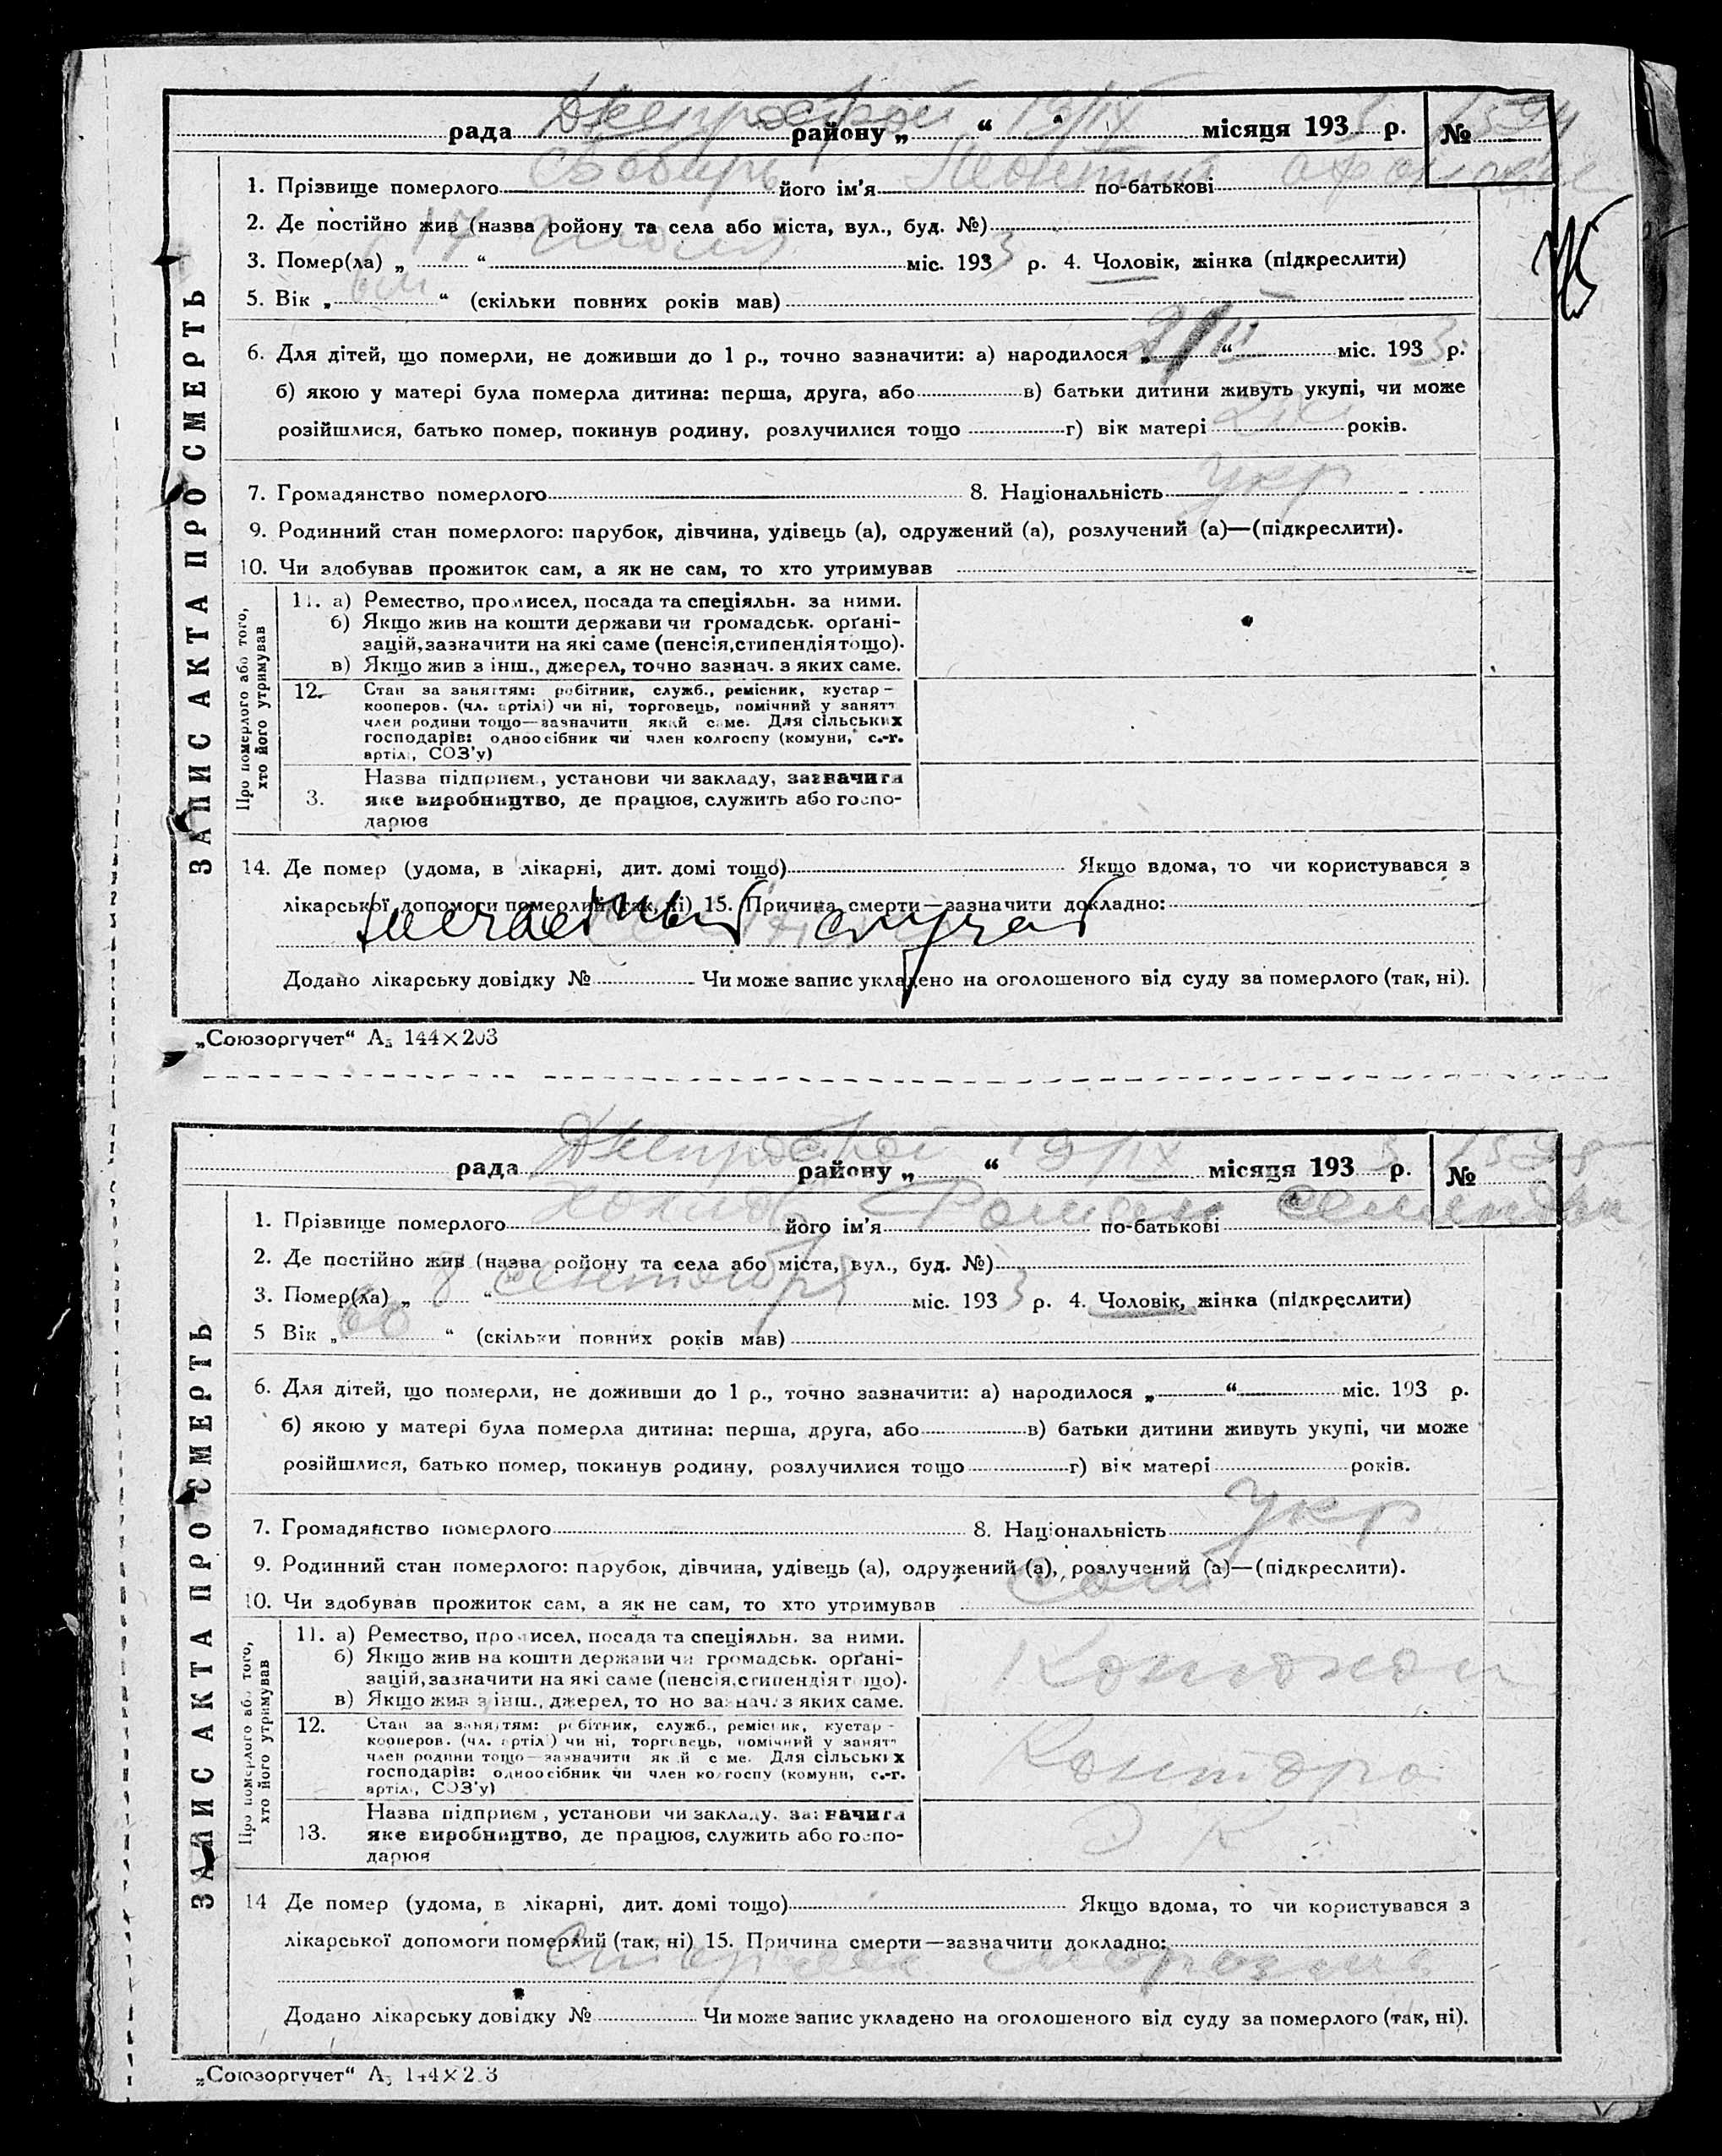 рада Днепрострой району „ “ 19/IX місяця 1933 р. № 1594
1. Прізвище померлого його ім’я Леонтий по-батькові
2. Де постійно жив (назва ройону та села або міста, вул., буд. №)
3. Помер(ла) „ 17 “ июля міс. 1933 р. 4. Чоловік, жінка (підкреслити)
5. Вік „ 6 м “ (скільки повних років мав)
6. Для дітей, що померли, не доживши до 1 р., точно зазначити: а) народилося „ “ міс. 1933 р.
б) якою у матері була померла дитина: перша, друга, або в) батьки дитини живуть укупі, чи може
розійшлися, батько помер, покинув родину, розлучилися тощо г) вік матері років.
7. Громадянство померлого 8. Національність укр
9. Родинний стан померлого: парубок, дівчина, удівець (а), одружений (а), розлучений (а)—(підкреслити).
10. Чи здобував прожиток сам, а як не сам, то хто утримував
ЗАПИС АКТА ПРО СМЕРТЬ
Про померлого або того, хто його утримував
11. а) Ремество, промисел, посада та спеціяльн. за ними.
б) Якщо жив на кошти держави чи громадськ. орґані-
зацій, зазначити на які саме (пенсія, стипендія тощо).
в) Якщо жив з інш., джерел, точно зазнач. з яких саме.
12. Стан за заняттям: робітник, служб., ремісник, кустар –
кооперов. (чл. артілі) чи ні, торговець, помічний у занятт
член родини тощо—зазначити який саме. Для сільських
господарів: одноосібник чи член колгоспу (комуни, с.-г.
артілі, СОЗ’у)
Назва підприєм., установи чи закладу, зазначити
3. яке виробництво, де працює, служить або госпо-
дарює
14. Де помер (удома, в лікарні, дит. домі тощо) Якщо вдома, то чи користувався з
лікарської допомоги померлий (так, ні) 15. Причина смерти—зазначити докладно:
несчастный случай
Додано лікарську довідку № Чи може запис укладено на оголошеного від суду за померлого (так, ні).
„Союзоргучет“ А₅ 144×203
рада Днепрострой району „ “ 19/IX місяця 1933 р. № 1595
1. Прізвище померлого його ім’я Роман по-батькові
2. Де постійно жив (назва ройону та села або міста, вул., буд. №)
3. Помер(ла) „ 8 “ сентября міс. 1933 р. 4. Чоловік, жінка (підкреслити)
5 Вік „ 60 “ (скільки повних років мав)
6. Для дітей, що померли, не доживши до 1 р., точно зазначити: а) народилося „ “ міс. 193 р.
б) якою у матері була померла дитина: перша, друга, або в) батьки дитини живуть укупі, чи може
розійшлися, батько помер, покинув родину, розлучилися тощо г) вік матері років.
7. Громадянство померлого 8. Національність укр
9. Родинний стан померлого: парубок, дівчина, удівець (а), одружений (а), розлучений (а)—(підкреслити).
10. Чи здобував прожиток сам, а як не сам, то хто утримував сам
ЗАПИС АКТА ПРО СМЕРТЬ
Про померлого або того, хто його утримував
11. а) Ремество, промисел, посада та спеціяльн. за ними.
б) Якщо жив на кошти держави чи громадськ. орґані-
зацій, зазначити на які саме (пенсія, стипендія тощо).
в) Якщо жив з інш., джерел, точно зазнач. з яких саме.
12. Стан за заняттям: робітник, служб., ремісник, кустар –
кооперов. (чл. артілі) чи ні, торговець, помічний у занятт
член родини тощо—зазначити який саме. Для сільських
господарів: одноосібник чи член колгоспу (комуни, с.-г.
артілі, СОЗ’у)
Контора
Назва підприєм., установи чи закладу, зазначити
13. яке виробництво, де працює, служить або госпо-
дарює
14 Де помер (удома, в лікарні, дит. домі тощо) Якщо вдома, то чи користувався з
лікарської допомоги померлий (так, ні) 15. Причина смерти—зазначити докладно:
Додано лікарську довідку № Чи може запис укладено на оголошеного від суду за померлого (так, ні).
„Союзоргучет“ А₅ 144×2 3